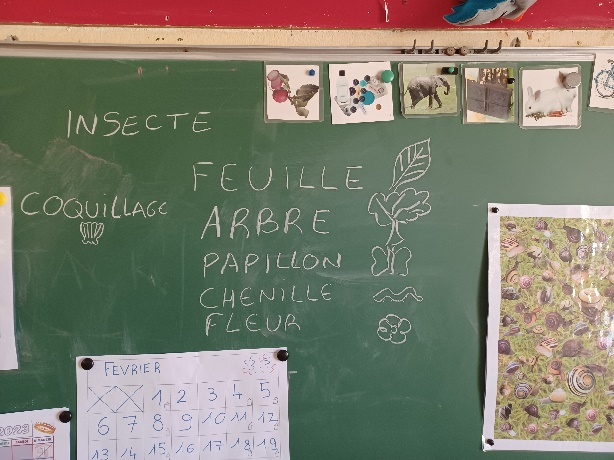 INSECTE
FEUILLE
COQUILLAGE
ARBRE
PAPILLON
CHENILLE
FLEUR
FEVRIER
1 2 3 4 5
6 7 8 9 10 11 12
13 14 15 16 17 18 19
2023